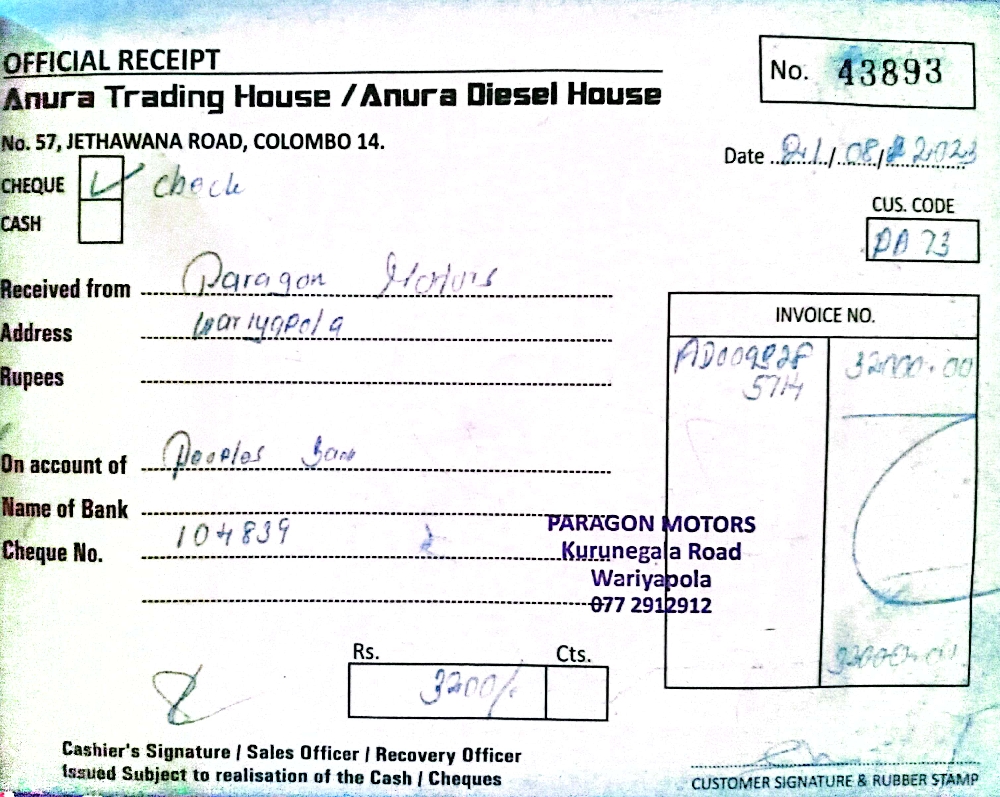 OFFICIAL RECEIPT
No. 43893
Anura Trading House / Anura Diesel House
No. 57, JETHAWANA ROAD, COLOMBO 14.
Date 21/08/2023
CHEQUE check
CASH
CUS. CODE
PA 73
Received from Paragon Motors
Address Wariyapola
Rupees
INVOICE NO.
32000.00
5714
On account of Peoples
Name of Bank
Cheque No. 104839
PARAGON MOTORS
Kurunegala Road
Wariyapola
077 2912912
32000.00
Rs. Cts.
3200/-
Cashier's Signature / Sales Officer / Recovery Officer
Issued Subject to realisation of the Cash / Cheques
CUSTOMER SIGNATURE & RUBBER STAMP